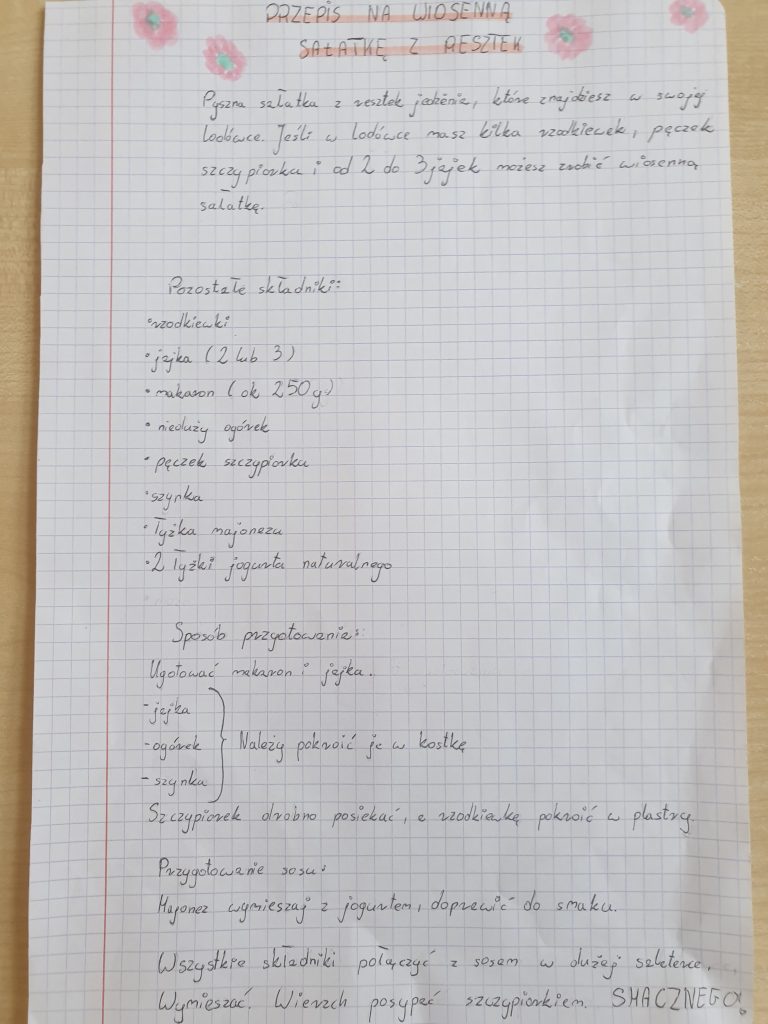 PRZEPIS NA WIOSENNĄ
SAŁATKĘ Z RESZTEK
Pyszna sałatka z resztek jedzenia, które znajdziesz w swojej
lodówce. Jeśli w lodówce masz kilka rzodkiewek, pęczek
szczypiorku i od 2 do 3 jajek możesz zrobić wiosenną
sałatkę.
Pozostałe składniki:
• rzodkiewki
• jajka (2 lub 3)
• makaron (ok 250g)
• nieduży ogórek
• pęczek szczypiorku
• szynka
• łyżka majonezu
• 2 łyżki jogurta naturalnego
Sposób przygotowania:
Ugotować makaron i jajka.
- jajka
- ogórek } Należy pokroić je w kostkę
- szynka
Szczypiorek drobno posiekać, a rzodkiewkę pokroić w plastry.
Przygotowanie sosu:
Majonez wymieszaj z jogurtem, doprawić do smaku.
Wszystkie składniki połączyć z sosem w dużej salaterce.
Wymieszać. Wierzch posypać szczypiorkiem. SMACZNEGO!